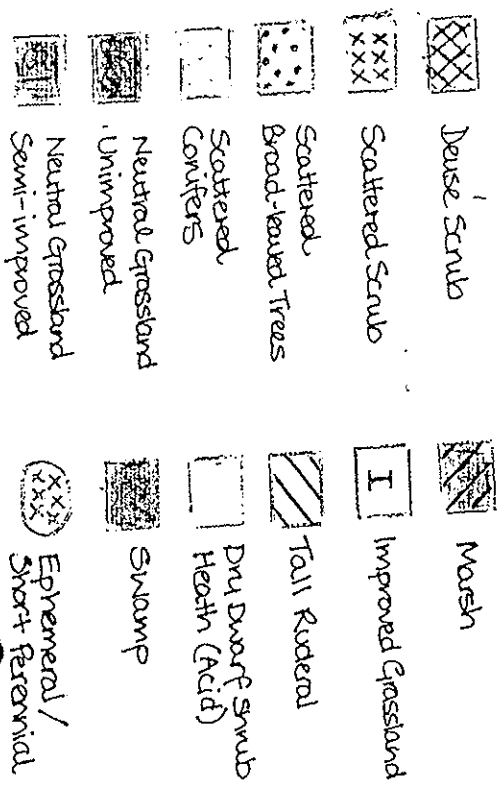 Dense Scrub
Scattered Scrub
Scattered
Broad-leaved Trees
Scattered
Conifers
Neutral Grassland
Unimproved
Neutral Grassland
Semi-improved
Marsh
I
Improved Grassland
Tall Ruderal
Dry Dwarf Shrub
Heath (Acid)
Swamp
Ephemeral /
Short Perennial